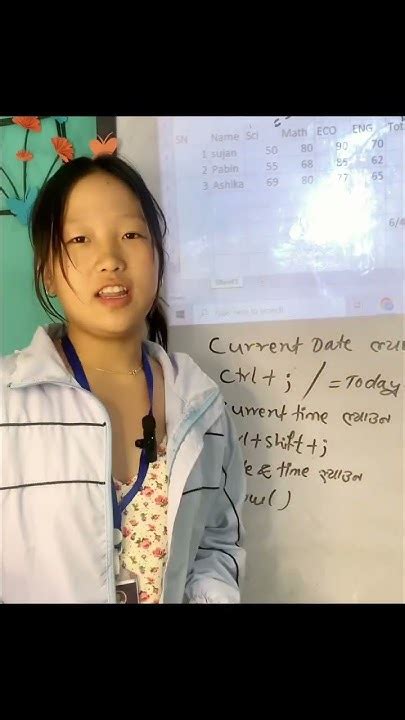 SN Name Sci Math ECO ENG Tot
1 sujan 50 80 90 70
2 Pabin 55 68 85 62
3 Ashika 69 80 77 65
6/4
Sheet1
Type here to search
Current Date ल्याउ
Ctrl + ; / = Today
Current time ल्याउन
+ shift + ;
& time ल्याउन
()